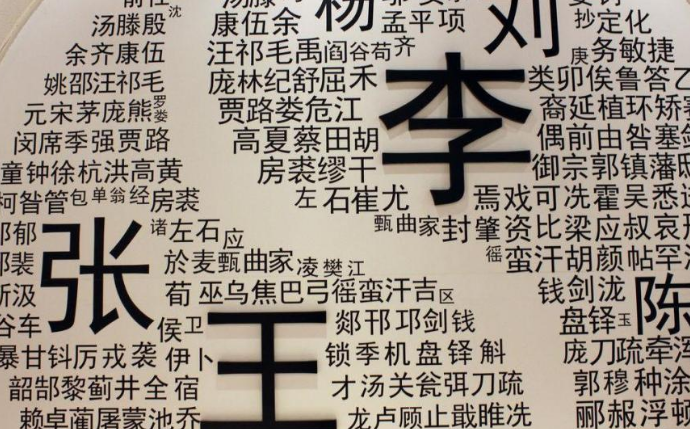 汤滕殷 沈 康伍余 杨 孟平项 刘 抄定化
余齐康伍 汪祁毛禹阎谷荀齐 庚务敏捷
姚邵汪祁毛 庞林纪舒屈禾 李 类卯俟鲁答
元宋茅庞熊 罗娄 贾路娄危江 裔延植环矫
闵席季强贾路 高夏蔡田胡 偶前由咎塞剑
童钟徐杭洪高黄 房裘缪干 御宗郭镇藩邸
柯昝管 包单翁经 房裘 左石崔尤 焉戏可冼霍吴悉
郁 张 诸左石应 甄曲家 封肇资比梁应叔哀
裴 於麦甄曲家 凌樊江 徭 蛮汗胡颜帕罕
汲 荀 巫乌焦巴弓徭蛮汗吉 区 钱剑泷 陈
谷车 侯卫 王 郯邗邛剑钱 盘铎 玉
暴甘钭厉戎袭 伊卜 锁季机盘铎斛 庞刀疏牵浑
韶郜黎蓟井全宿 才汤关瓮弭刀疏 郭穆种涂
赖卓蔺屠蒙池乔 龙卢顾止戢睢冼 郦赧浮顿